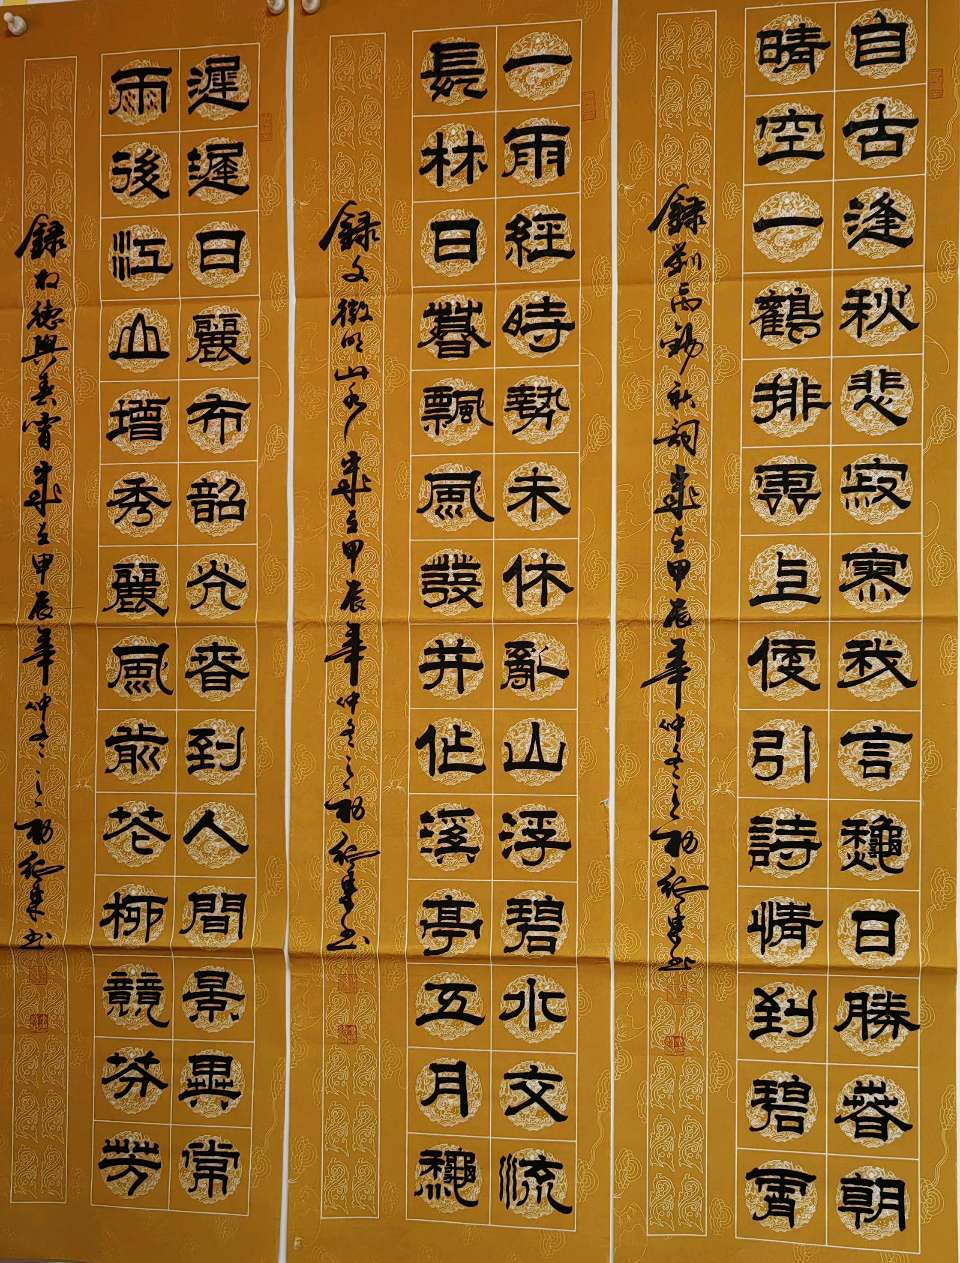 自古逢秋悲寂寥我言龝日勝春朝
晴空一鶴排雲上便引詩情到碧霄
錄劉禹錫秋詞歲在甲辰年仲冬之初書
一雨經時勢未休亂山浮碧水交流
長林日暮飄風發并作溪亭五月龝
錄文徵明山水歲在甲辰年仲冬之初書
遲遲日麗布韶光春到人間景異常
雨後江山增秀麗風前花柳競芬芳
錄德興春宵歲在甲辰年仲冬之初書